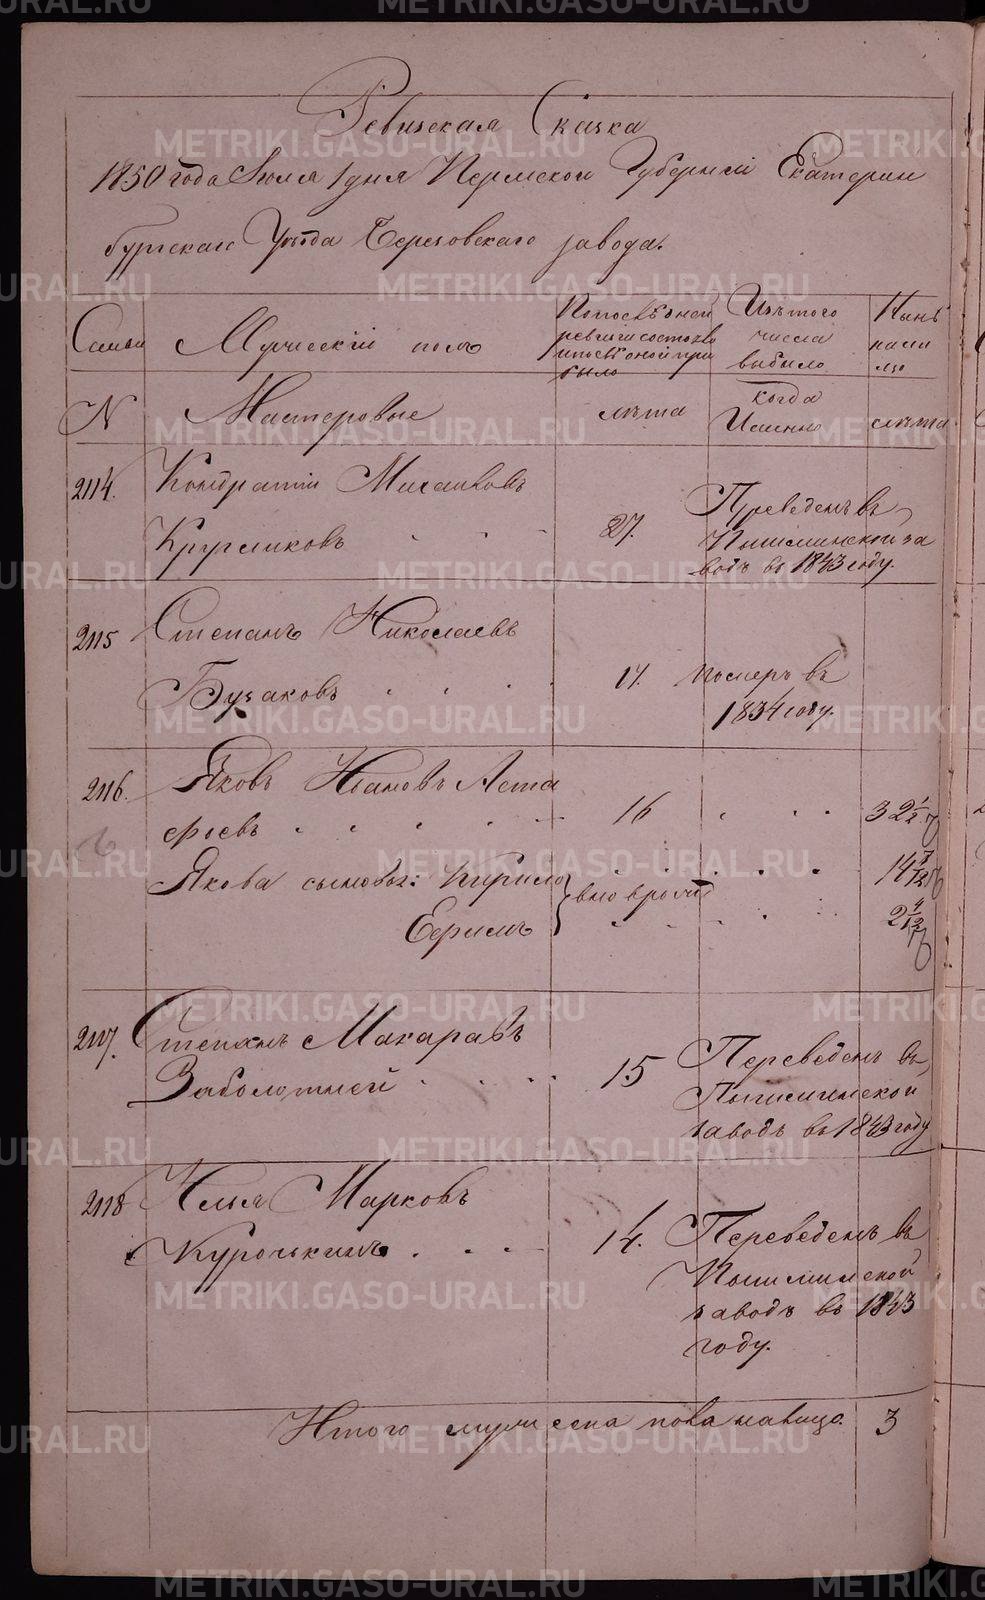 Ревизская Сказка
1850 года Июля 1 дня Пермской Губерніи Екатерин
бургскаго Уѣзда Березовскаго завода.
Семьи
Мужескій полъ
По послѣдней
ревизіи состояло
и послѣ оной при
было
Изъ того
числа
выбыло
Нынѣ
на ли
цо
N
Мастеровые
лѣта
когда
Именно
лѣта
2114. Кондратій Михаиловъ
Кругликовъ 27. Переведенъ въ
Пышминской за
водъ въ 1843 году.
2115 Степанъ Николаевъ
Бузаковъ 17. померъ въ
1834 году.
2116. Яковъ Ивановъ Аста
фьевъ 16 32 1/2
Якова сыновья: Кирило 14 7/12
вно врожд
Ефимъ 2 4/12
2117. Степанъ Макаравъ
Заболотней 15 Переведенъ въ
Пышминской
заводъ въ 1843 году
2118 Илья Марковъ
Курочкинъ 14. Переведенъ въ
Пышминской
заводъ въ 1843
году.
Итого мужеска пола налицо. 3
METRIKI.GASO-URAL.RU